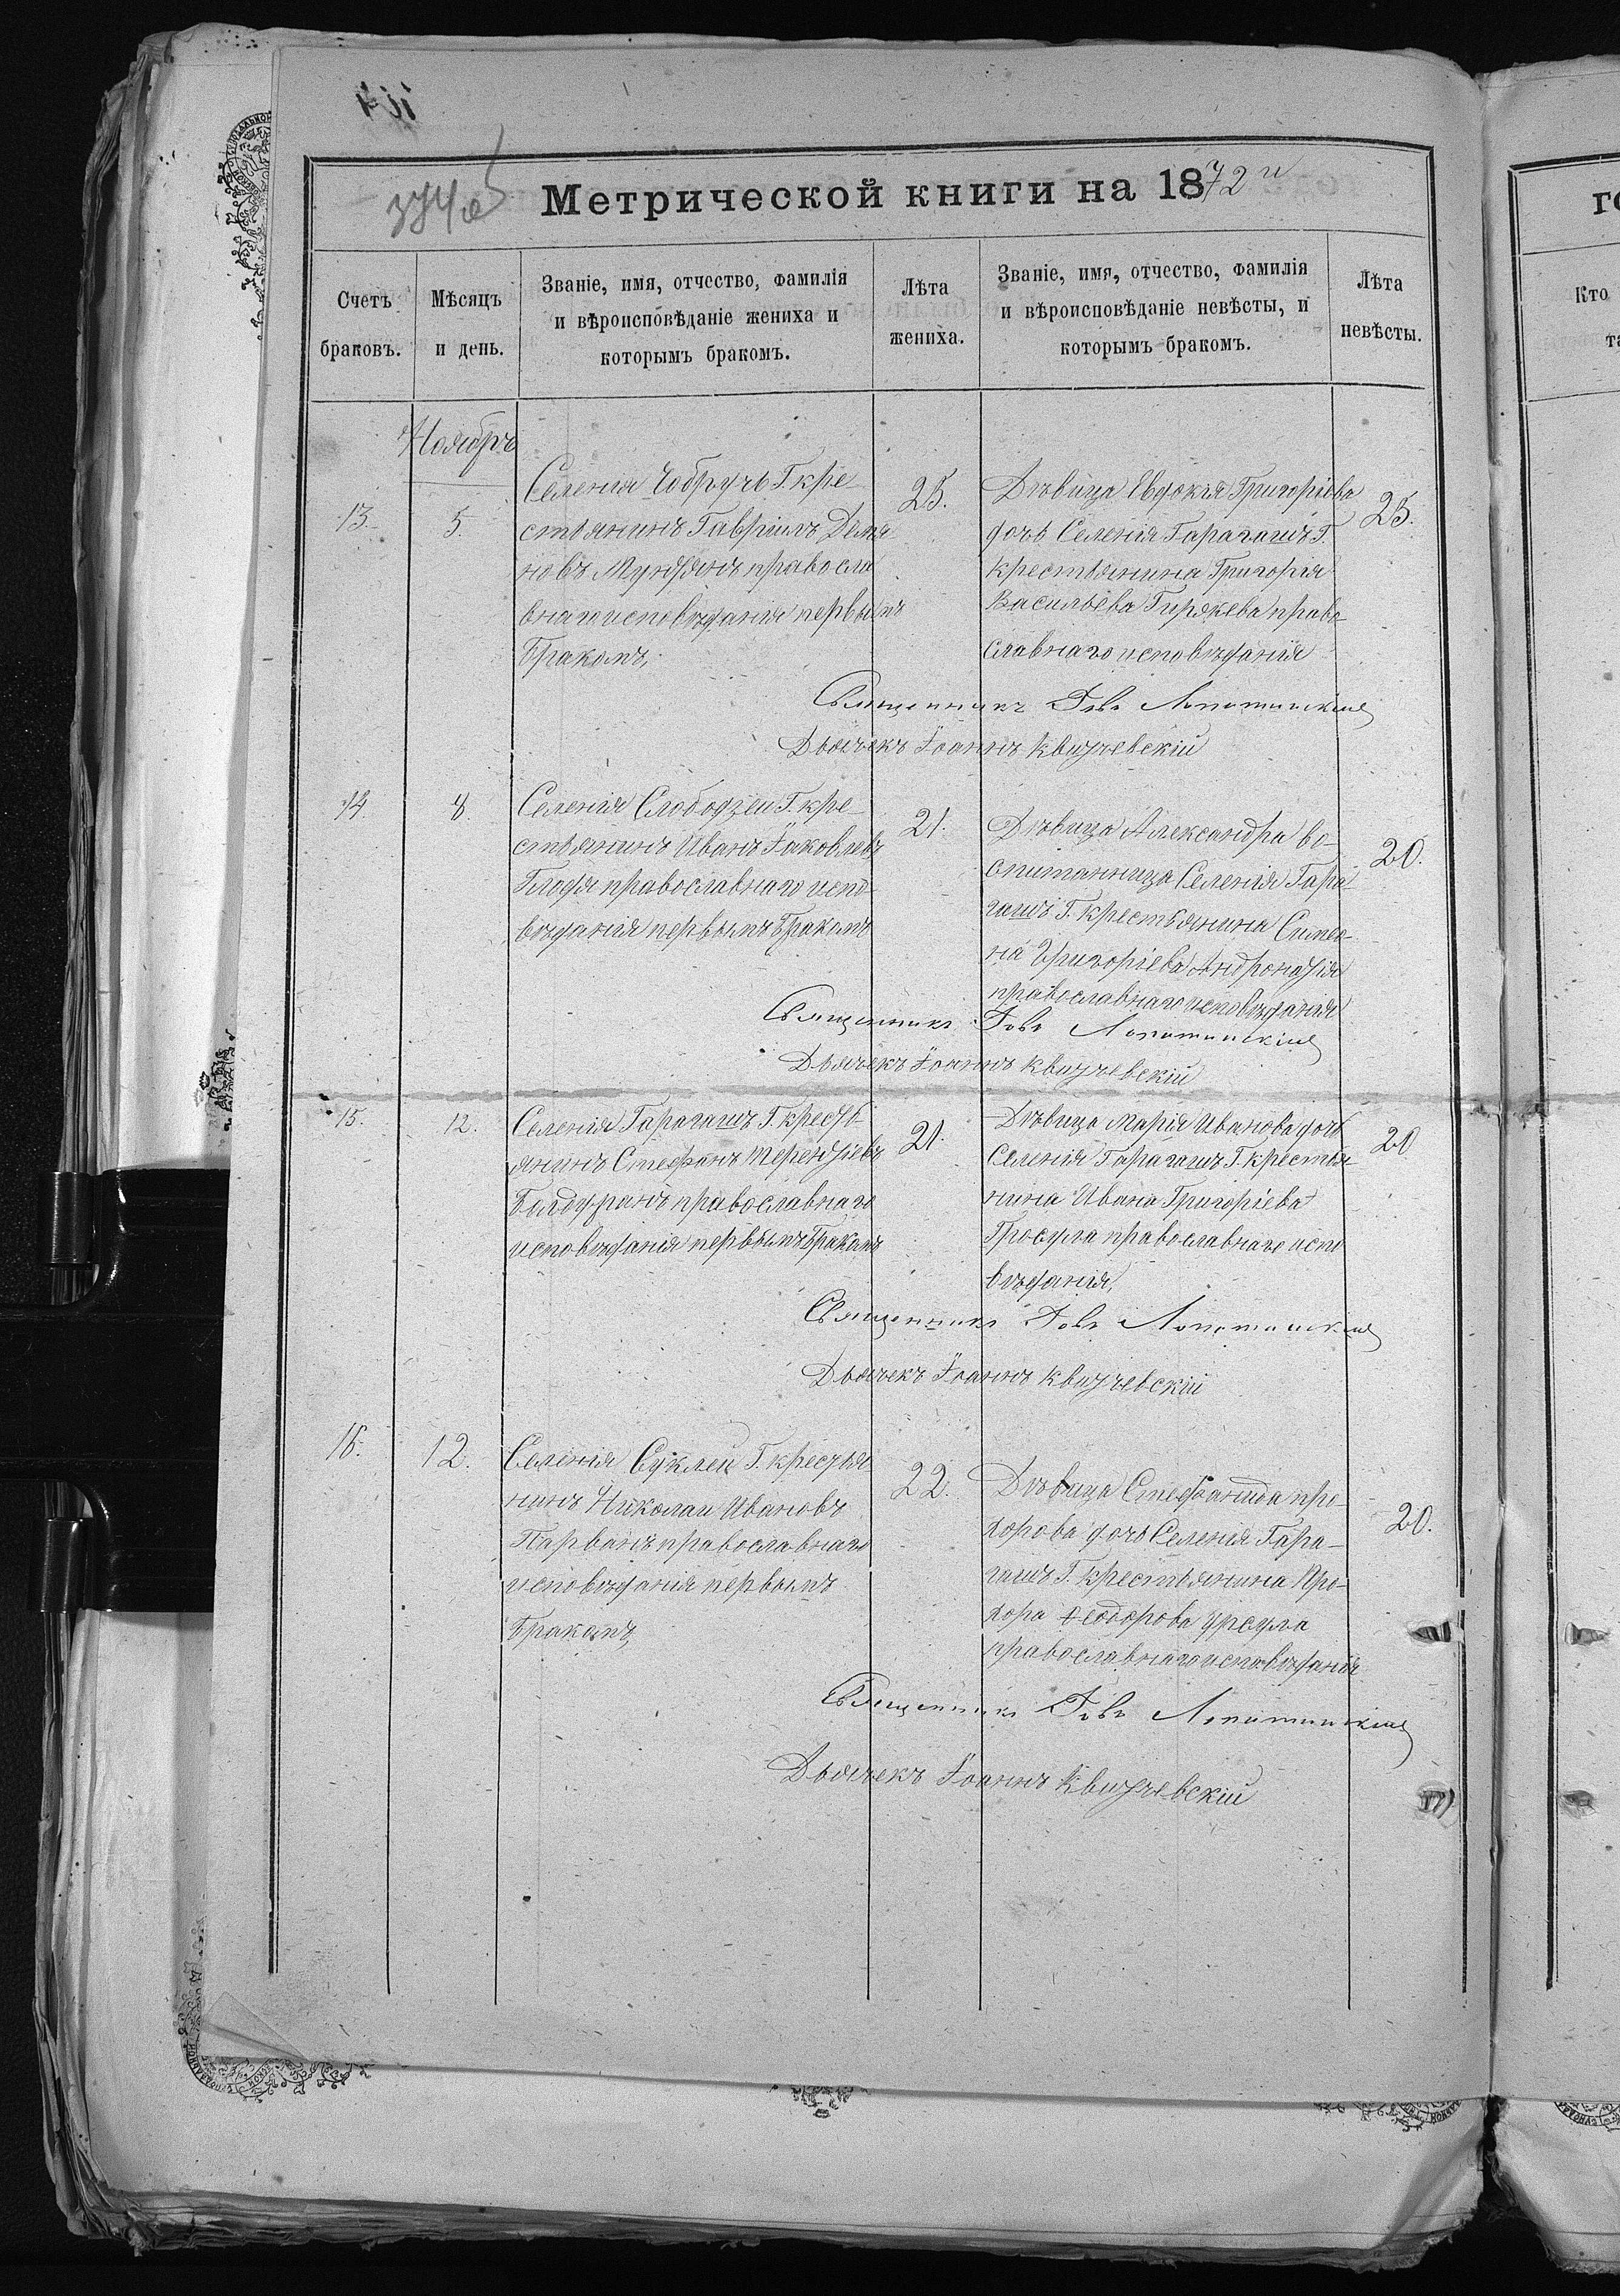 Метрической книги на 1872 й
Счетъ браковъ.
Мѣсяцъ и день.
Званіе, имя, отчество, фамилія
и вѣроисповѣданіе жениха и
которымъ бракомъ.
Лѣта жениха.
Званіе, имя, отчество, фамилія
и вѣроисповѣданіе невѣсты, и
которымъ бракомъ.
Лѣта невѣсты.
Ноябрь
13
5.
Селенія Чобручь Г. кре-
стьянинъ Гавріилъ Демя-
новъ Мунтянъ правосла
внаго исповѣданія первымъ
бракомъ,
25.
Дѣвица Евдокія Григоріева
дочь Селенія Гарагашъ Г.
крестьянина Григорія
Васильева Гирякева право-
славнаго исповѣданія
25.
Священникъ Іовъ Лопатинскій
Дьячекъ Іоаннъ Квитчевскій
14
8.
Селенія Слободзеи Г. кре-
стьянинъ Иванъ Іаковлевъ
Глодя православнаго испо-
вѣданія первымъ бракомъ
21.
Дѣвица Александра во-
спитанница Селенія Гара-
гашъ Г. крестьянина Симео-
на Григоріева Андронатія
православнаго исповѣданія
20.
Священникъ Іовъ Лопатинскій
Дьячекъ Іоаннъ Квитчевскій
15.
12.
Селенія Гарагашъ Г. кресть-
янинъ Стефанъ Терентіевъ
Болдуранъ православнаго
исповѣданія первымъ бракомъ
21.
Дѣвица Марія Иванова дочь
Селенія Гарагашъ Г. крестья-
нина Ивана Григоріева
Гросула православнаго испо
вѣданія,
20
Священникъ Іовъ Лопатинскій
Дьячекъ Іоаннъ Квитчевскій
16.
12.
Селенія Суклеи Г. крестья
нинъ Николай Ивановъ
Парванъ православнаго
исповѣданія первымъ
бракомъ,
22.
Дѣвица Стефанида про-
хорова дочь Селенія Гара-
гашъ Г. крестьянина Про-
хора Ѳеодорова Урсула
православнаго исповѣданія
20.
Священникъ Іовъ Лопатинскій
Дьячекъ Іоаннъ Квитчевскій